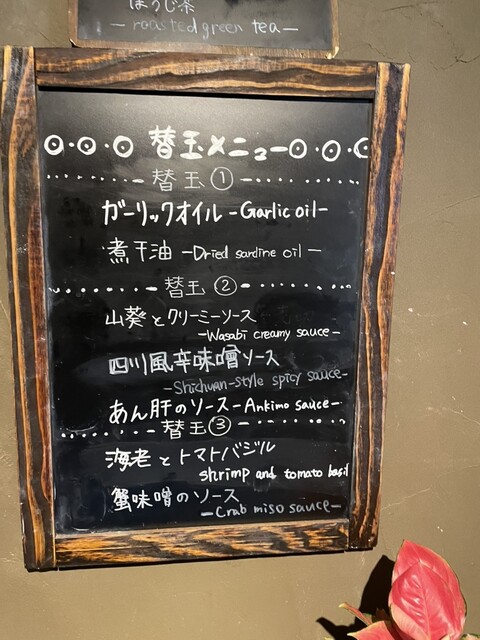 ほうじ茶
— roasted green tea —
替玉メニュー
替玉①
ガーリックオイル -Garlic oil-
煮干油 -Dried sardine oil-
替玉②
山葵とクリーミーソース
-Wasabi creamy sauce-
四川風辛味噌ソース
-Shichuan-style spicy sauce-
あん肝のソース-Ankimo sauce-
替玉③
海老とトマトバジル
shrimp and tomato basil
蟹味噌のソース
-Crab miso sauce-